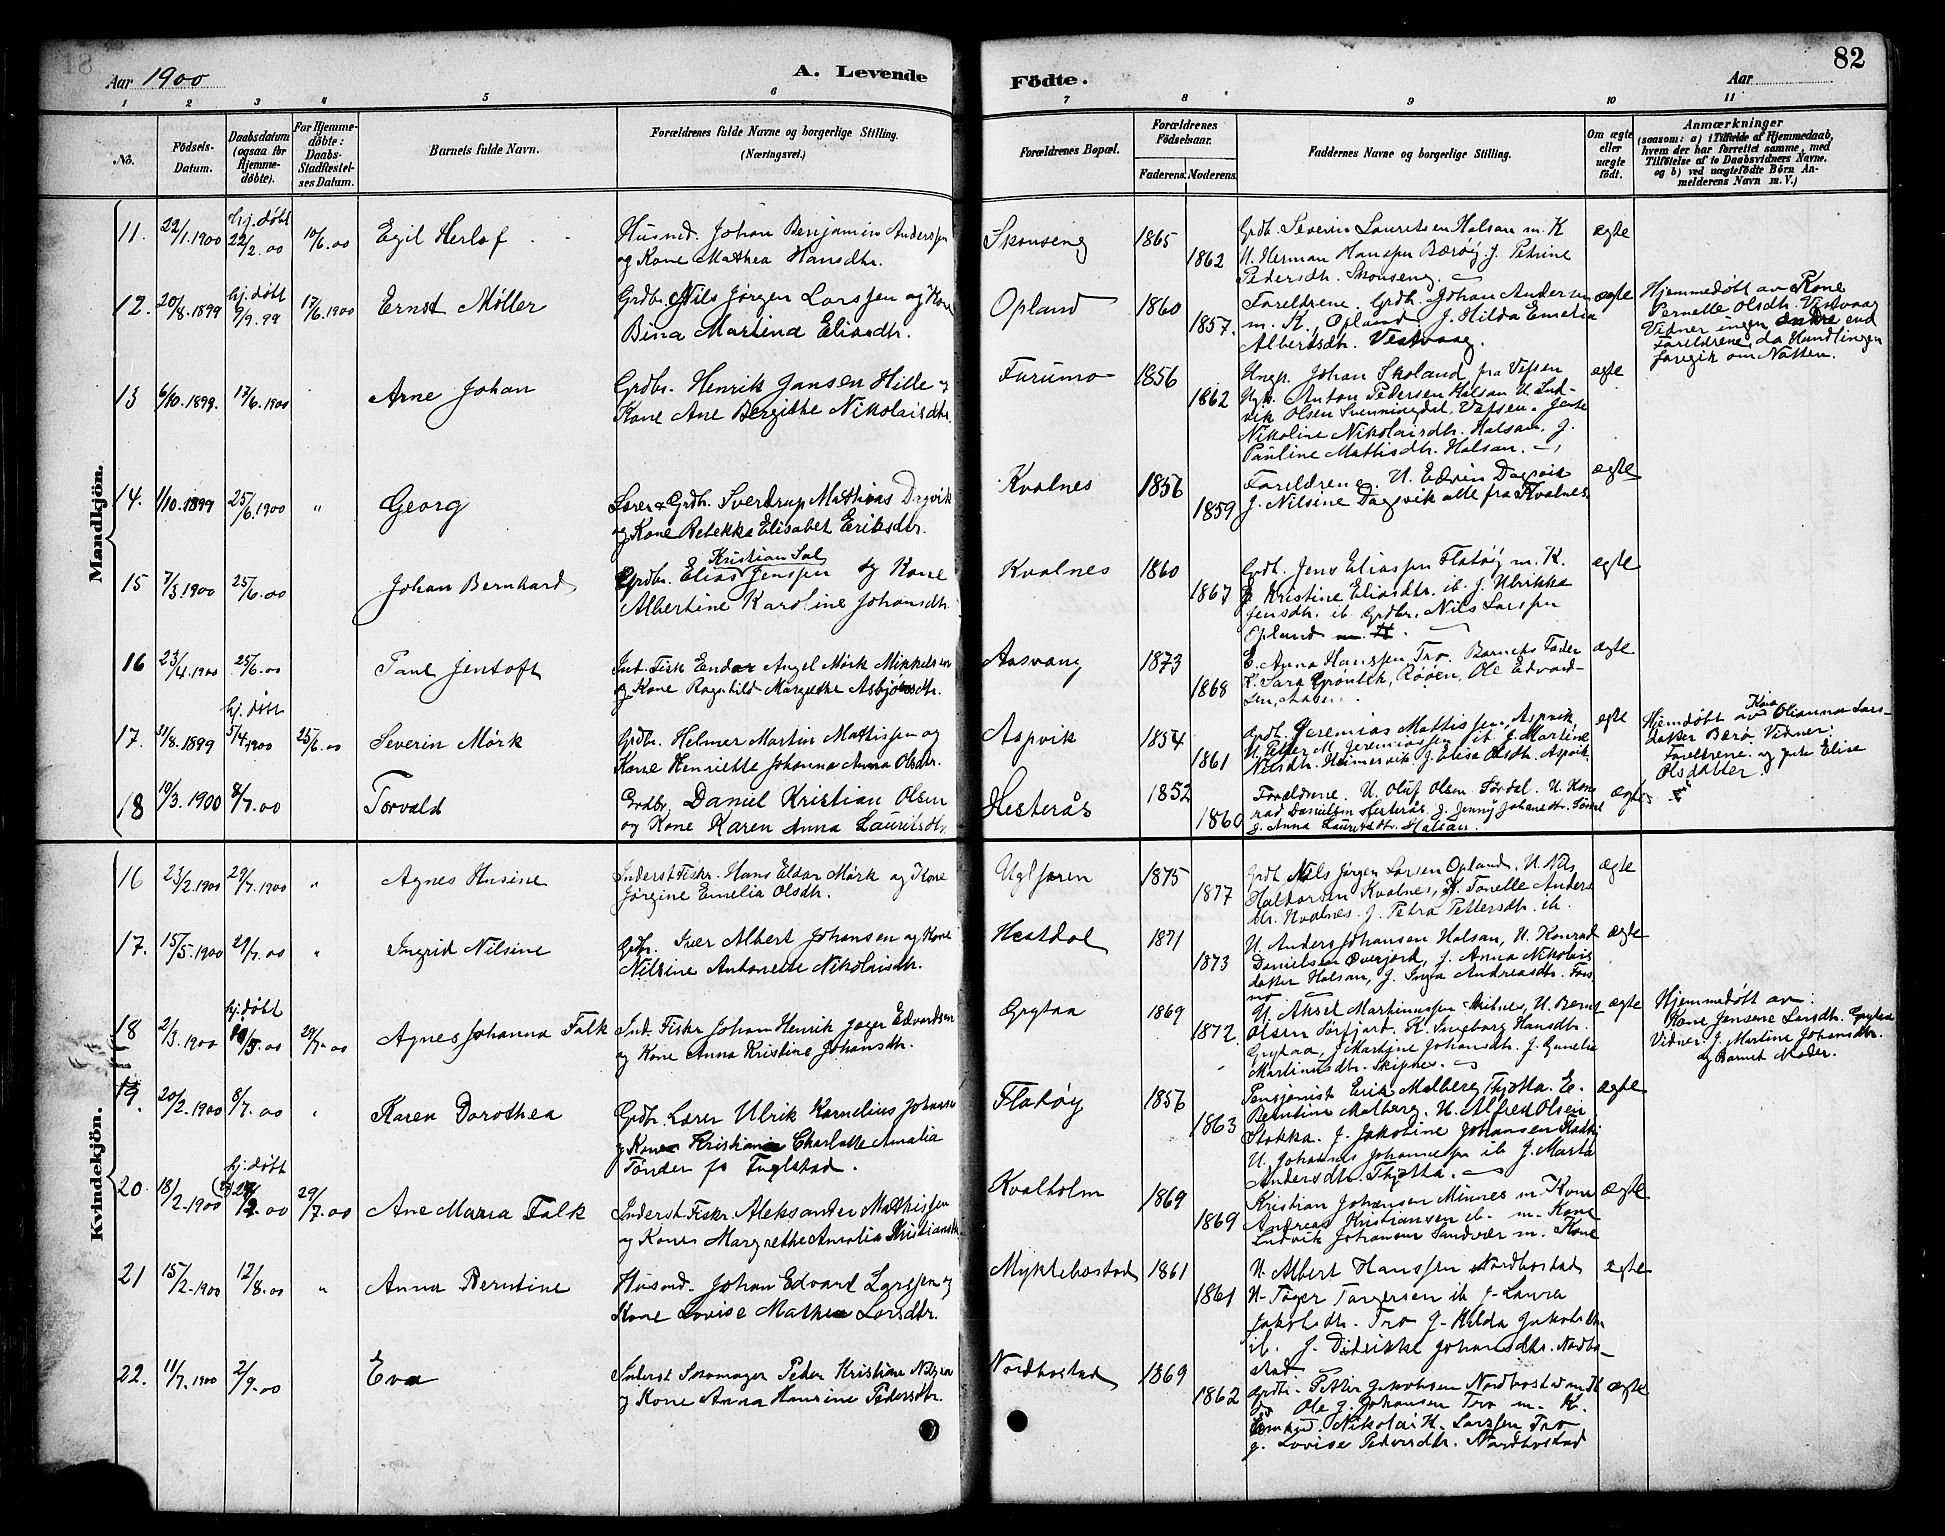 Aar 1900
A. Levende
Födte.
Aar
82
1 2 3 4 5 6 7 8 9 10 11
No.
Födsels-
Datum.
Daabsdatum
(ogsaa for
Hjemme-
döbte).
For Hjemme-
döbte:
Daabs-
Stadfæstel-
ses Datum.
Barnets fulde Navn.
Forældrenes fulde Navne og borgerlige Stilling.
(Næringsvei.)
Forældrenes Bopæl.
Forældrenes
Födselsaar.
Faderens. Moderens.
Faddernes Navne og borgerlige Stilling.
Om ægte
eller
uægte
födt.
Anmærkninger
(saasom: a) i Tilfælde af Hjemmedaab,
hvem der har forrettet samme, med
Tilföielse af to Daabsvidners Navne.
og b) ved uægtefödte Börn An-
melderens Navn m. V.)
Mandkjön.
11. 22/1.1900 hj. döbt 22/2.00 10/6.00 Egil Herlof
Husmd. Johan Benjamin Anderssen
og Kone Mathea Hansdtr.
Skonseng 1865 1862
Grdb. Severin Lauritsen Halsan m. K
U. Herman Hanssen Bærøy. J. Petrine
Pedersdtr. Skonseng.
ægte
12. 20/8.1899 hj. döbt 9/9.99 17/6.1900 Ernst Møller
Grdbr. Nils Jørgen Larssen og Kone
Bina Martina Eliasdtr.
Opland 1860 1857.
Foreldrene. Grdb. Johan Andersen
m. K., Opland. J. Hilda Emelia
Albertsdtr. Vestvaag.
ægte
Hjemmedøbt av Kone
Pernelle Olsdtr. Vestvaag
Vidner ingen andre end
Foreldrene da Handlingen
foregik om Natten.
13 6/10.1899. 17/6.1900 Arne Johan
Grdbr. Henrik Jansen Hille og
Kone Ane Bergithe Nikolaisdtr.
Furumo 1856 1862
Ungk. Johan Skoland fra Vefsen
Ugk. Anton Pedersen Halsan U. Lud-
vik Olsen Svenningdal, Vefsen. Jente
Nikoline Nikolaisdtr. Halsan. J.
Pauline Mattisdtr. Halsan.
ægte
14. 1/10.1899 25/6.1900 " Georg
Lærer & Grdbr. Sverdrup Mathias Dagvik
og Kone Rebekka Elisabet Eriksdtr.
Kvalnes 1856 1859
Foreldrene. U. Edvin Dagvik
J. Nilsine Dagvik alle fra Kvalnes
ægte
15 7/3.1900 25/6.00 Johan Bernhard
Kristian Sal
Grdbr. Elias Jenssen og Kone
Albertine Karoline Johansdtr.
Kvalnes 1860 1867
Grdb. Jens Eliassen Flatøy m. K.
E. Kristine Eliasdtr. ib. J. Ulrikka
Jensdtr. ib. Grdbr. Nils Larssen
Opland m. K.
ægte
16 23/4.1900 25/6.00 Paul Jentoft
Ind. Fisk Endar Angel Mørk Mikkelsen
og Kone Ragnhild Margrethe Asbjørnsdtr.
Aasvang 1873 1868
E. Anna Hanssen Tro. Barnets Fader
K. Sara Grønbek, Røøen, Ole Edvard-
sen, Aasen.
ægte
17. 31/8.1899 hj. döbt 5/4.1900 25/6.00 Severin Mørk
Grdbr. Helmer Martin Mattissen og
Kone Henriette Johanna Anna Olsdtr.
Aspvik 1854 1861
Grdb. Jeremias Mattissen, Aspvik,
U. Peter M. Jeremiassen ib. J. Martine
Nilsdtr. Heimersvik J. Elisa Olsdtr. Aspvik.
ægte
Hjemdøbt av Kone Olianna Lars-
datter Bærø. Vidner:
Foreldrene og Jente Elise
Olsdatter.
18 19/3.1900 8/7.00 Torvald
Grdbr. Daniel Kristian Olsen
og Kone Karen Anna Lauritsdtr.
Hesterås 1852 1860
Foreldrene. U. Oluf Olsen Sørdal. U. Kon-
rad Danielsen Hesterås. J. Jenny Johansdtr.
J. Anna Lauritsdtr. Halsan.
ægte
Kvindekjön.
16 23/2.1900 29/7.1900 " Agnes Husine
Inderst Fiskr. Hans Eldar Mørk og Kone
Jørgine Emelia Olsdtr.
Ugljøren 1875 1877
Grdb. Nils Jørgen Larsen Opland. U. Nils
Haldorsen Kvalnes, K. Tonelle Anders
dtr. Kvalnes. J. Petra Pettersdtr. ib.
ægte
17. 15/5.1900 29/7.00 " Ingrid Nilsine
Grdbr. Iver Albert Johansen og Kone
Nilsine Antonette Nikolaisdtr.
Hestdal 1871 1873
U. Anders Johansen Halsan, U. Konrad
Danielsen Øverjord, J. Anna Nikolais
datter Halsan, J. Inga Andreasdtr. Fors
mo
ægte
18 2/3.1900 hj. döbt 10/5.00 29/7.00 Agnes Johanna Falk
Ind. Fiskr Johan Henrik Jager Edvardsen
og Kone Anna Kristine Johansdtr.
Grytaa 1869 1872
U. Aksel Martinussen U. Bernt
Olsen Sørfjord. K. Ingeborg Hansdtr.
Grytaa, J. Martine Johansdtr. J. Gunelie
Martinusdtr.
ægte
Hjemmedøbt av:
Kone Jensene Larsdtr. Grytaa
Vidner J. Martine Johansdtr.
og Barnet Moder.
19. 20/2.1900 8/7.00 " Karen Dorothea
Grdbr. Lærer Ulrik Kornelius Johansen
og Kone Kristiane Charlotte Amalia
Tønder fr. Fuglstad.
Flatøy 1856 1863
Pensjonist Erik Malberg Thjøtta. E.
Berntine Malberg. U. Alfred Olsen
Stokka. J. Jakobine Johansen
U. Johannes Johannesen ib J. Marta
Andersdtr. Thjøtta.
ægte
20. 18/2.1900 hj. döbt 24/2.00 29/7.00 Ane Maria Falk
Inderst Fiskr Aleksander Mathissen
og Kone Margrethe Amalia Kristiansdtr
Kvalholm 1869 1869
Kristian Johansen Minnes m. Kone
Andreas Kristiansen ib. m. Kone
Ludvik Johansen Sandvær m. Kone
ægte
21 15/2.1900 12/8.00 " Anna Berntine
Husmd. Johan Edvard Larssen og
Kone Lovise Mathea Larsdtr.
Myklebostad 1861 1861
U. Albert Hanssen Nordbostad
U. Tøger Torgersen ib J. Laura
Jakobsdtr. Tro J. Hilda Jakobsdtr
ib. J. Didrikke Johansdtr. Nordbo-
stad.
ægte
22. 11/7.1900 2/9.00 Eva
Inderst Skomager Peder Kristian Nilssen
og Kone Anna Hansine Pedersdtr.
Nordbostad 1869 1862
Grdb. Petter Jakobsen Nordbostad
Ole J. Johansen Tro m. K.
Nikolai K. Larssen Tro
J. Lovise Pedersdtr. Nordbostad
ægte